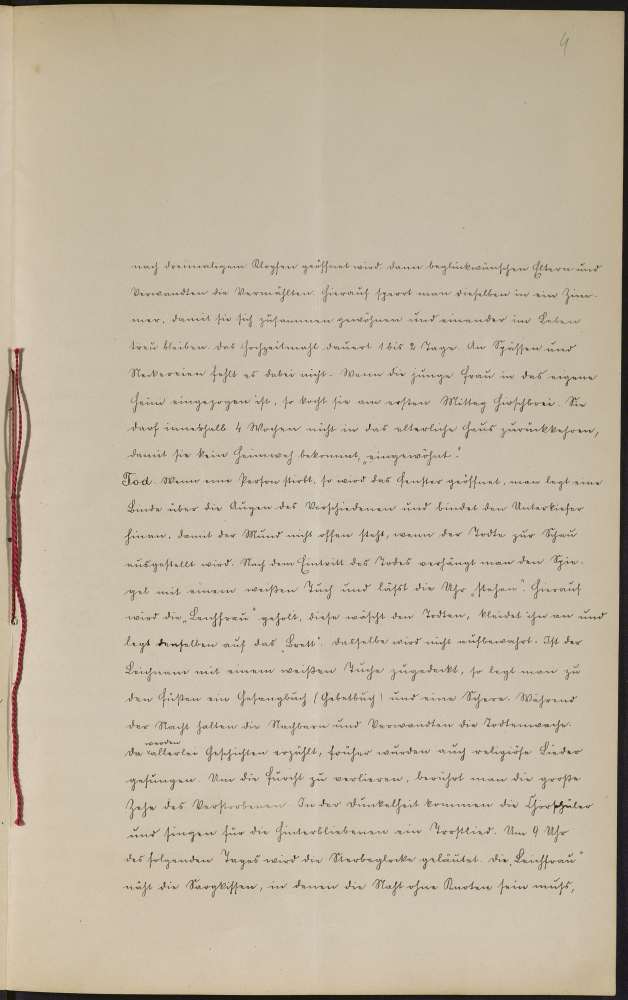 4
nach dreimaligem Klopfen geöffnet wird. Dann beglückwünschen Eltern und
Verwandten die Vermählten. Hierauf sperrt man dieselben in ein Zim-
mer, damit sie sich zusammen gewöhnen und einander im Leben
treu bleiben. Das Hochzeitmahl dauert 1 bis 2 Tage. An Späßen und
Neckereien fehlt es dabei nicht. Wenn die junge Frau in das eigene
Heim eingezogen ist, so kocht sie am ersten Mittag Hirschbrei. Sie
darf innerhalb 4 Wochen nicht in das elterliche Haus zurückkehren,
damit sie kein Heimweh bekommt, „eingewöhnt“.
Tod. Wenn eine Person stirbt, so wird das Fenster geöffnet, man legt eine
Binde über die Augen des Verschiedenen und bindet den Unterkiefer
hinan, damit der Mund nicht offen steht, wenn der Todte zur Schau
ausgestellt wird. Nach dem Eintritt des Todes verhängt man den Spie-
gel mit einem weißen Tuch und läßt die Uhr „stehen“. Hierauf
wird die „Leichfrau“ geholt, diese wäscht den Todten, kleidet ihn an und
legt denselben auf das „Brett“. Dasselbe wird nicht aufbewahrt. Ist der
Leichnam mit einem weißen Tuche zugedeckt, so legt man zu
den Füßen ein Gesangbuch (Gebetbuch) und eine Schere. Während
der Nacht halten die Nachbarn und Verwandten die Todtenwache.
Da werden allerlei Geschichten erzählt, früher wurden auch religiöse Lieder
gesungen. Um die Furcht zu verlieren, berührt man die große
Zehe des Verstorbenen. In der Dunkelheit kommen die Chorschüler
und singen für die Hinterbliebenen ein Trostlied. Um 9 Uhr
des folgenden Tages wird die Sterbeglocke geläutet. Die „Leichfrau“
näht die Sargkissen, in denen die Naht ohne Knoten sein muß,